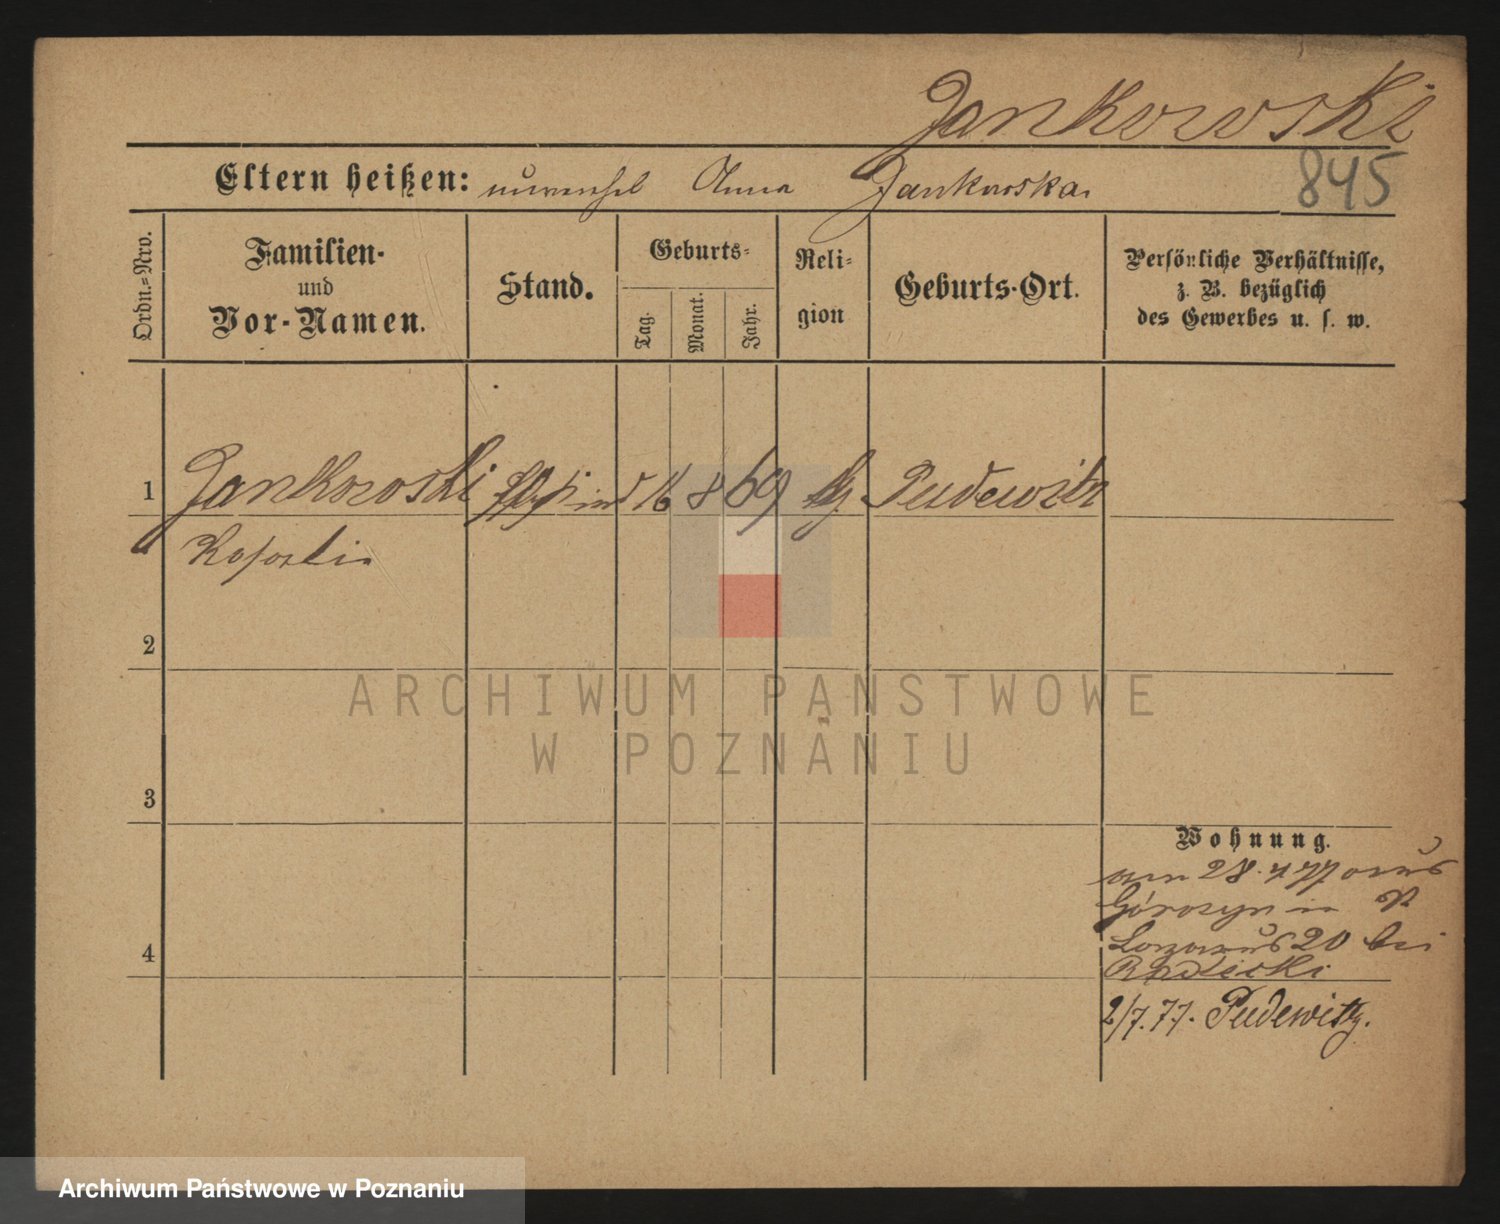 Jankowski
845
Eltern heißen: Anna Jankowska
Ordn.=Nro.
Familien-
und
Vor-Namen.
Stand.
Geburts=
Tag.
Monat.
Jahr.
Reli=
gion
Geburts-Ort.
Persönliche Verhältnisse,
z. B. bezüglich
des Gewerbes u. s. w.
1 Jankowski 16 8 69 Pudewitz
2
3
Wohnung.
am 28. 4 77 aus
in
Lazarus 20 bei
4
2/7.77. Pudewitz.
ARCHIWUM PAŃSTWOWE
W POZNANIU
Archiwum Państwowe w Poznaniu